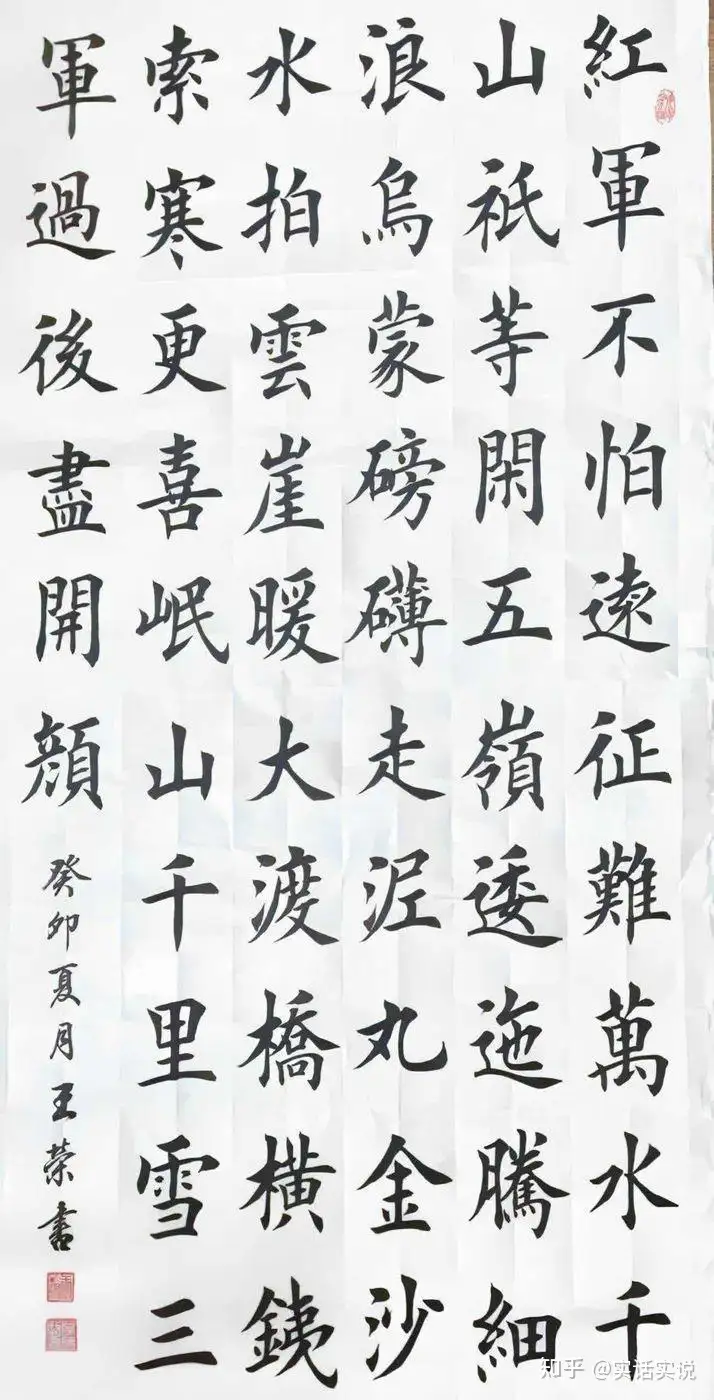 紅軍不怕遠征難萬水千
山祇等閑五嶺逶迤騰細
浪烏蒙磅礴走泥丸金沙
水拍雲崖暖大渡橋橫銕
索寒更喜岷山千里雪三
軍過後盡開顏
癸卯夏月王荣書
知乎 @实话实说